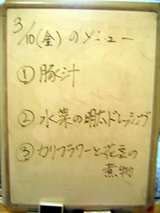 3/10(金)のメニュー
① 豚汁
② 水菜の明太ドレッシング
③ カリフラワーと花豆の
煮物